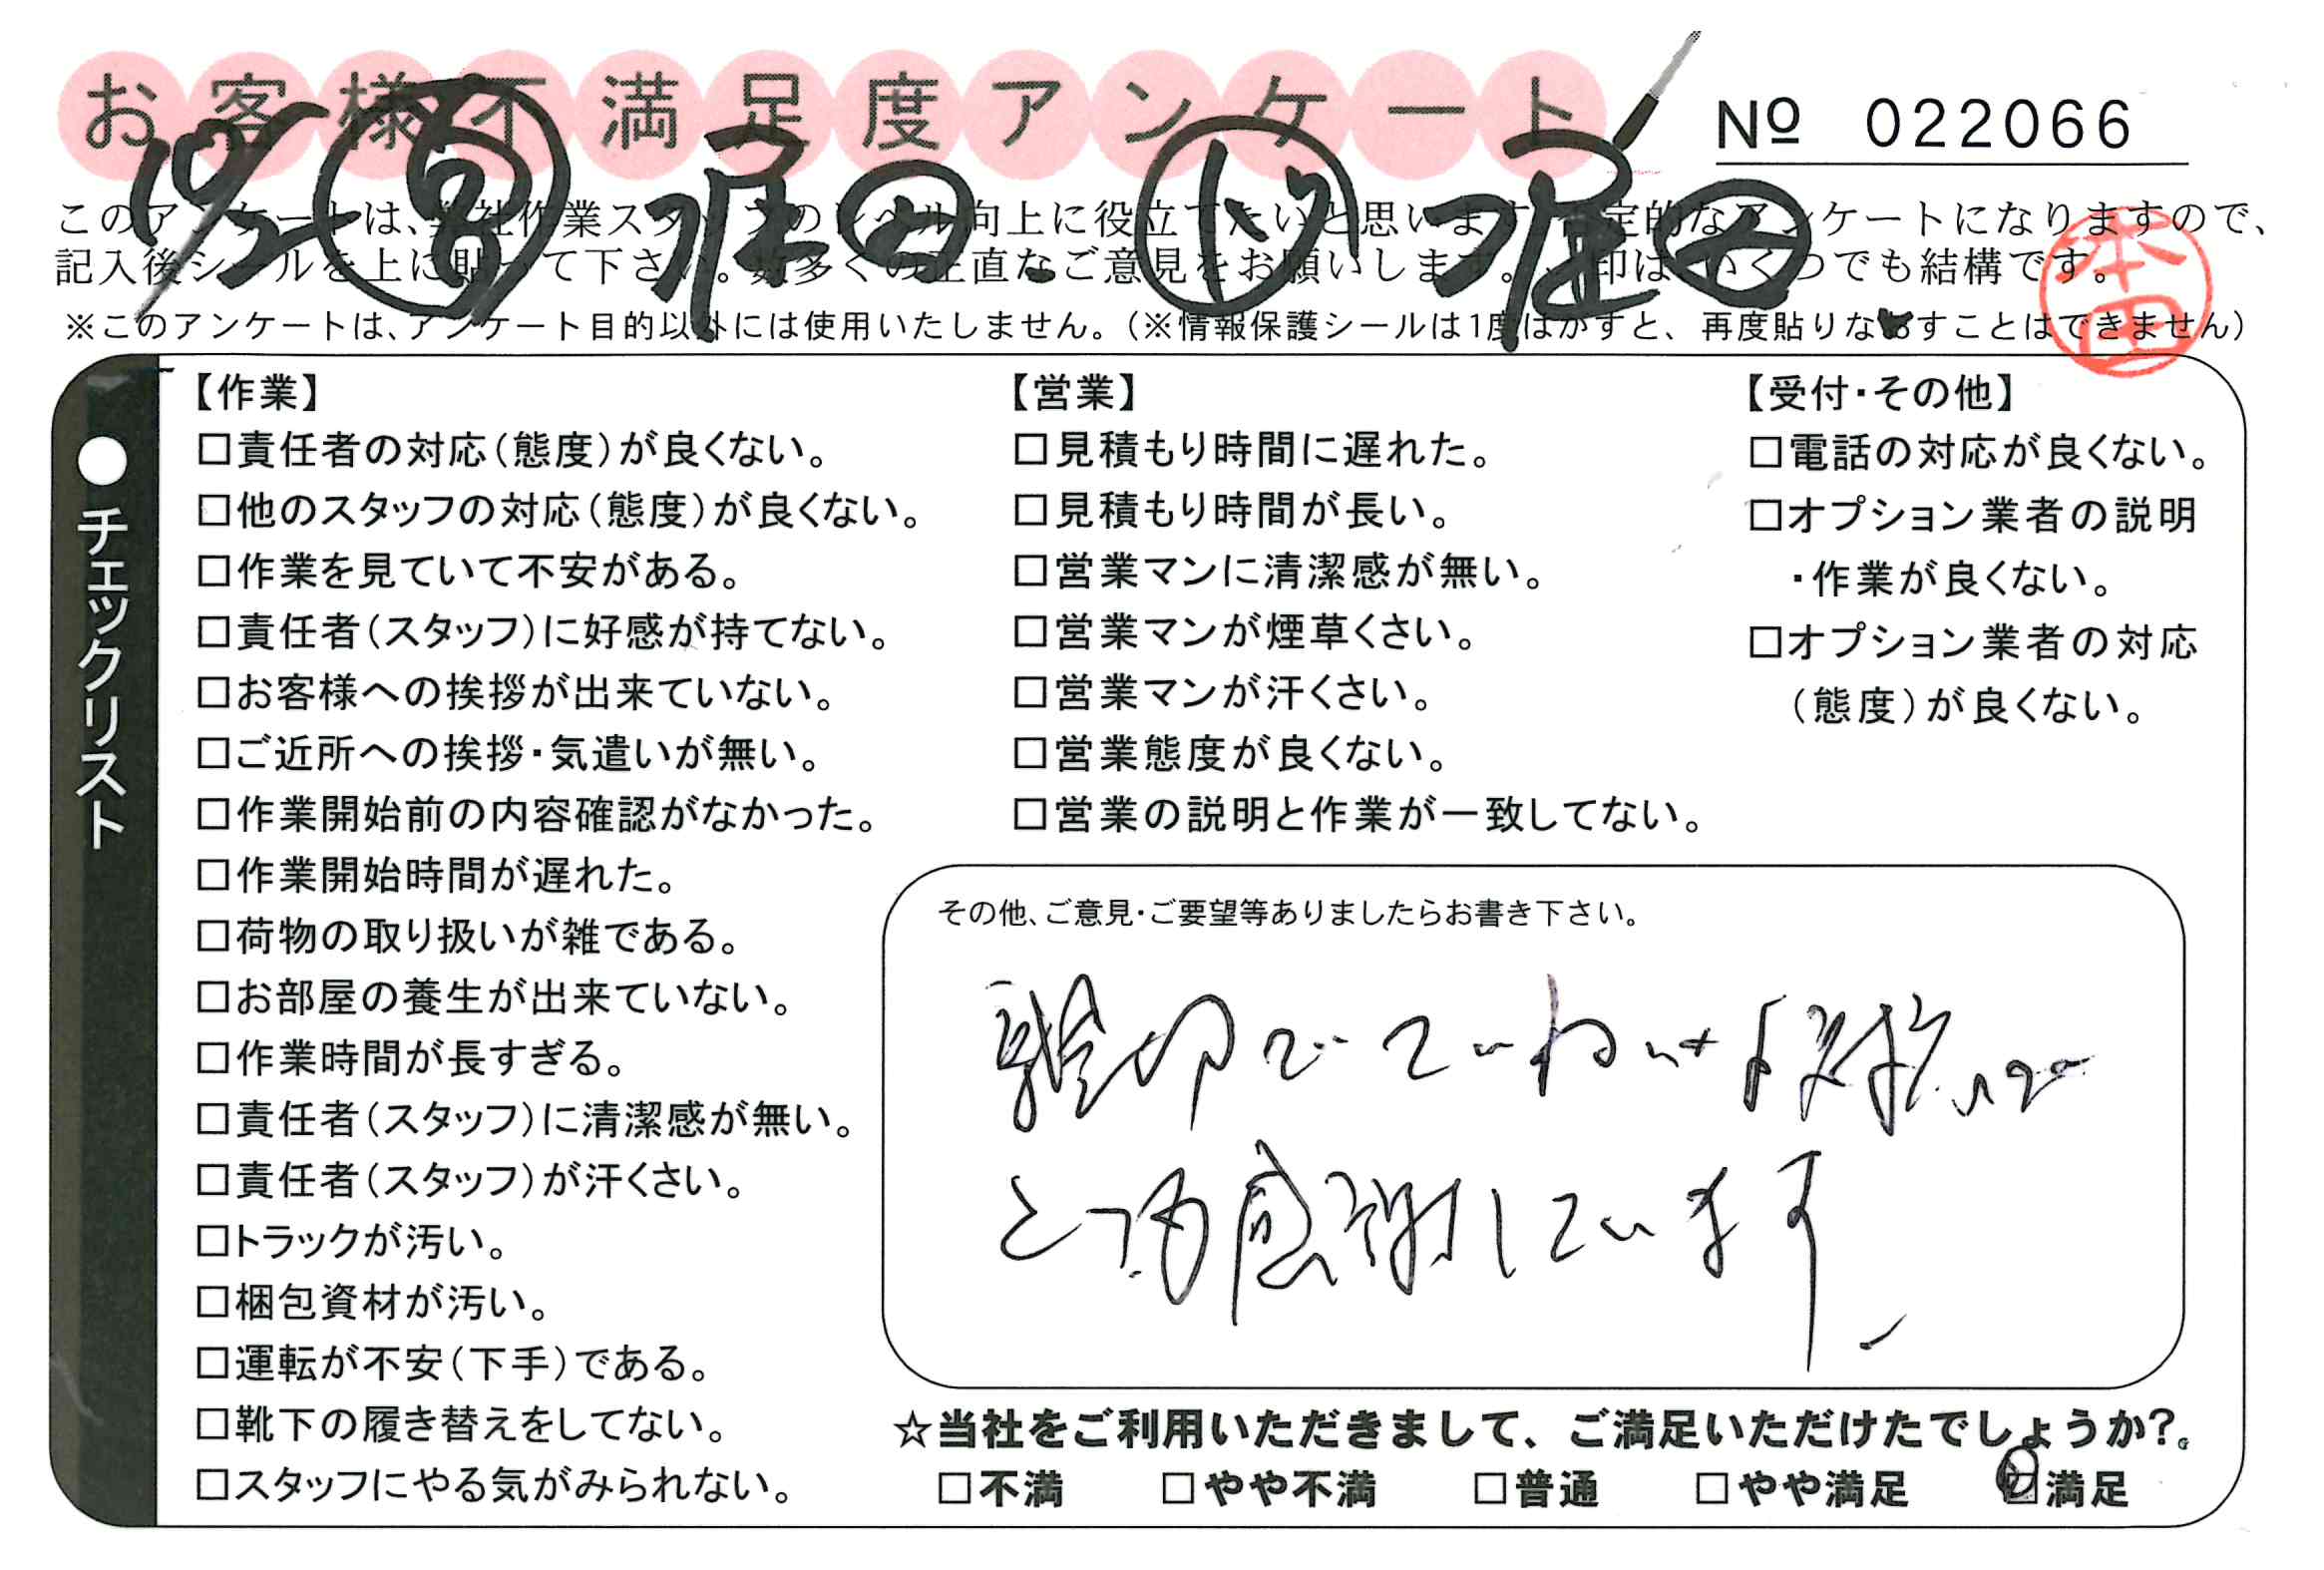 お客様不満足度アンケート
Nº 022066
10/2 堀田 堀田
このアンケートは、弊社作業スタッフのレベル向上に役立てたいと思います。否定的なアンケートになりますので、
記入後シールを上に貼って下さい。数多くの正直なご意見をお願いします。✓印はいくつでも結構です。
本田
※このアンケートは、アンケート目的以外には使用いたしません。（※情報保護シールは1度はがすと、再度貼りなおすことはできません）
●チェックリスト
【作業】
□責任者の対応（態度）が良くない。
□他のスタッフの対応（態度）が良くない。
□作業を見ていて不安がある。
□責任者（スタッフ）に好感が持てない。
□お客様への挨拶が出来ていない。
□ご近所への挨拶・気遣いが無い。
□作業開始前の内容確認がなかった。
□作業開始時間が遅れた。
□荷物の取り扱いが雑である。
□お部屋の養生が出来ていない。
□作業時間が長すぎる。
□責任者（スタッフ）に清潔感が無い。
□責任者（スタッフ）が汗くさい。
□トラックが汚い。
□梱包資材が汚い。
□運転が不安（下手）である。
□靴下の履き替えをしてない。
□スタッフにやる気がみられない。
【営業】
□見積もり時間に遅れた。
□見積もり時間が長い。
□営業マンに清潔感が無い。
□営業マンが煙草くさい。
□営業マンが汗くさい。
□営業態度が良くない。
□営業の説明と作業が一致してない。
【受付・その他】
□電話の対応が良くない。
□オプション業者の説明
・作業が良くない。
□オプション業者の対応
（態度）が良くない。
その他、ご意見・ご要望等ありましたらお書き下さい。
親切でていねいな
とても感謝しています
☆当社をご利用いただきまして、ご満足いただけたでしょうか？。
□不満 □やや不満 □普通 □やや満足 ☑満足